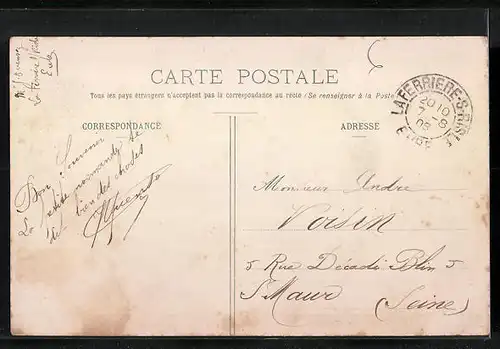 CARTE POSTALE
Tous les pays étrangers n'acceptent pas la correspondance au recto (Se renseigner à la Poste
CORRESPONDANCE
ADRESSE
LA FERRIERE-S-RISLE
EURE
Bon Souvenir
La petite normande te
dit bien des choses
Monsieur Andre
Voisin
5 Rue Décadi Blin 5
St Maur (Seine)